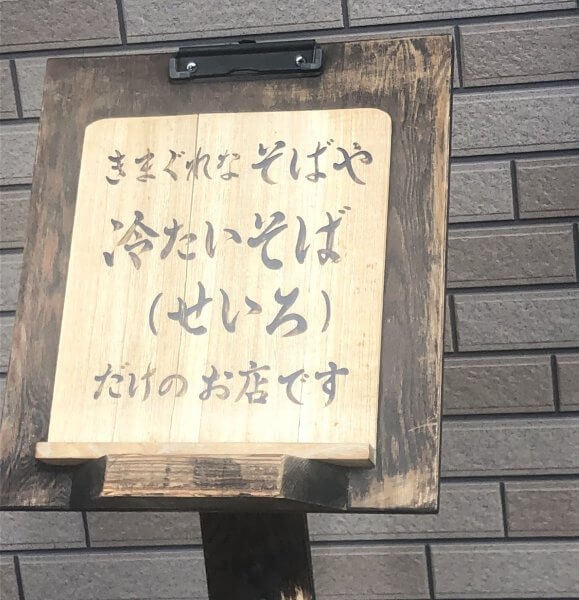 きまぐれなそばや
冷たいそば
(せいろ)
だけのお店です